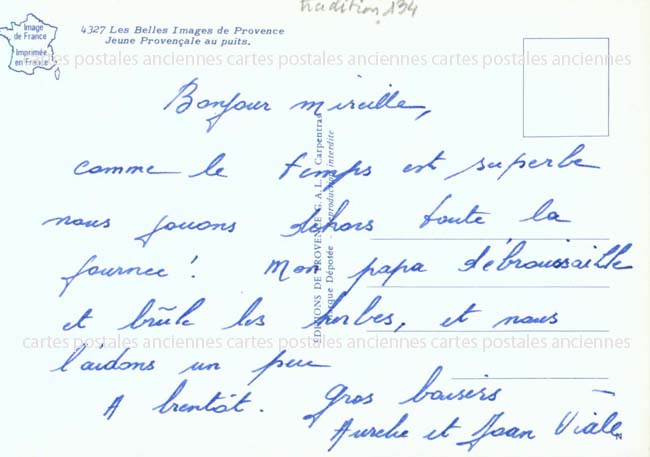 tradition 134
Image
de France
Imprimée
en France
4327 Les Belles Images de Provence
Jeune Provençale au puits.
cartes postales anciennes cartes postales anciennes cartes postales anciennes
Bonjour Mireille,
comme le temps est superbe
nous jouons dehors toute la
journee! Mon papa débroussaille
et brûle les herbes, et nous
cartes postales anciennes cartes postales anciennes cartes postales anciennes
l'aidons un peu
A bientôt. gros baisers
Aurelie et Joan Viale
EDITIONS DE PROVENCE G.A.L. Carpentras
Marque Déposée - Reproduction interdite